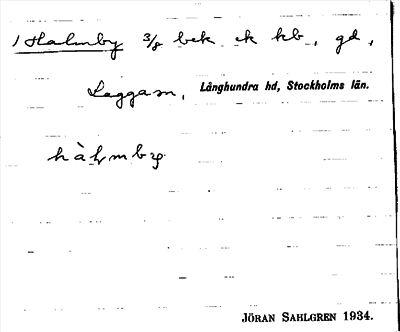 1 Halmby 3/8 bek ek kb., gd.,
Laggam, Långhundra hd, Stockholms län.
hàlmby
JÖRAN SAHLGREN 1934.